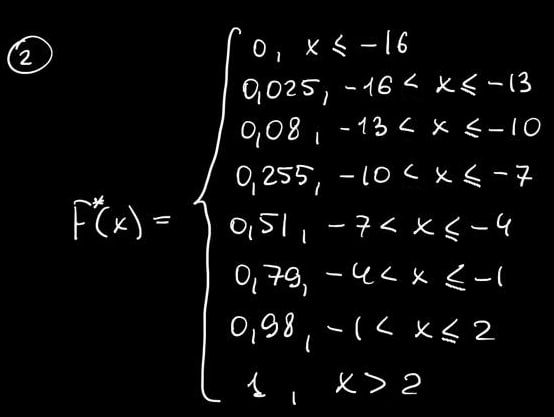 2
F*(x) =
0, x ≤ -16
0,025, -16 < x ≤ -13
0,08, -13 < x ≤ -10
0,255, -10 < x ≤ -7
0,51, -7 < x ≤ -4
0,79, -4 < x ≤ -1
0,98, -1 < x ≤ 2
1, x > 2